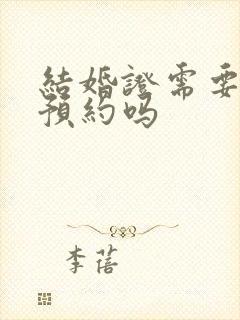 結婚證需要
預約吗
李蓓